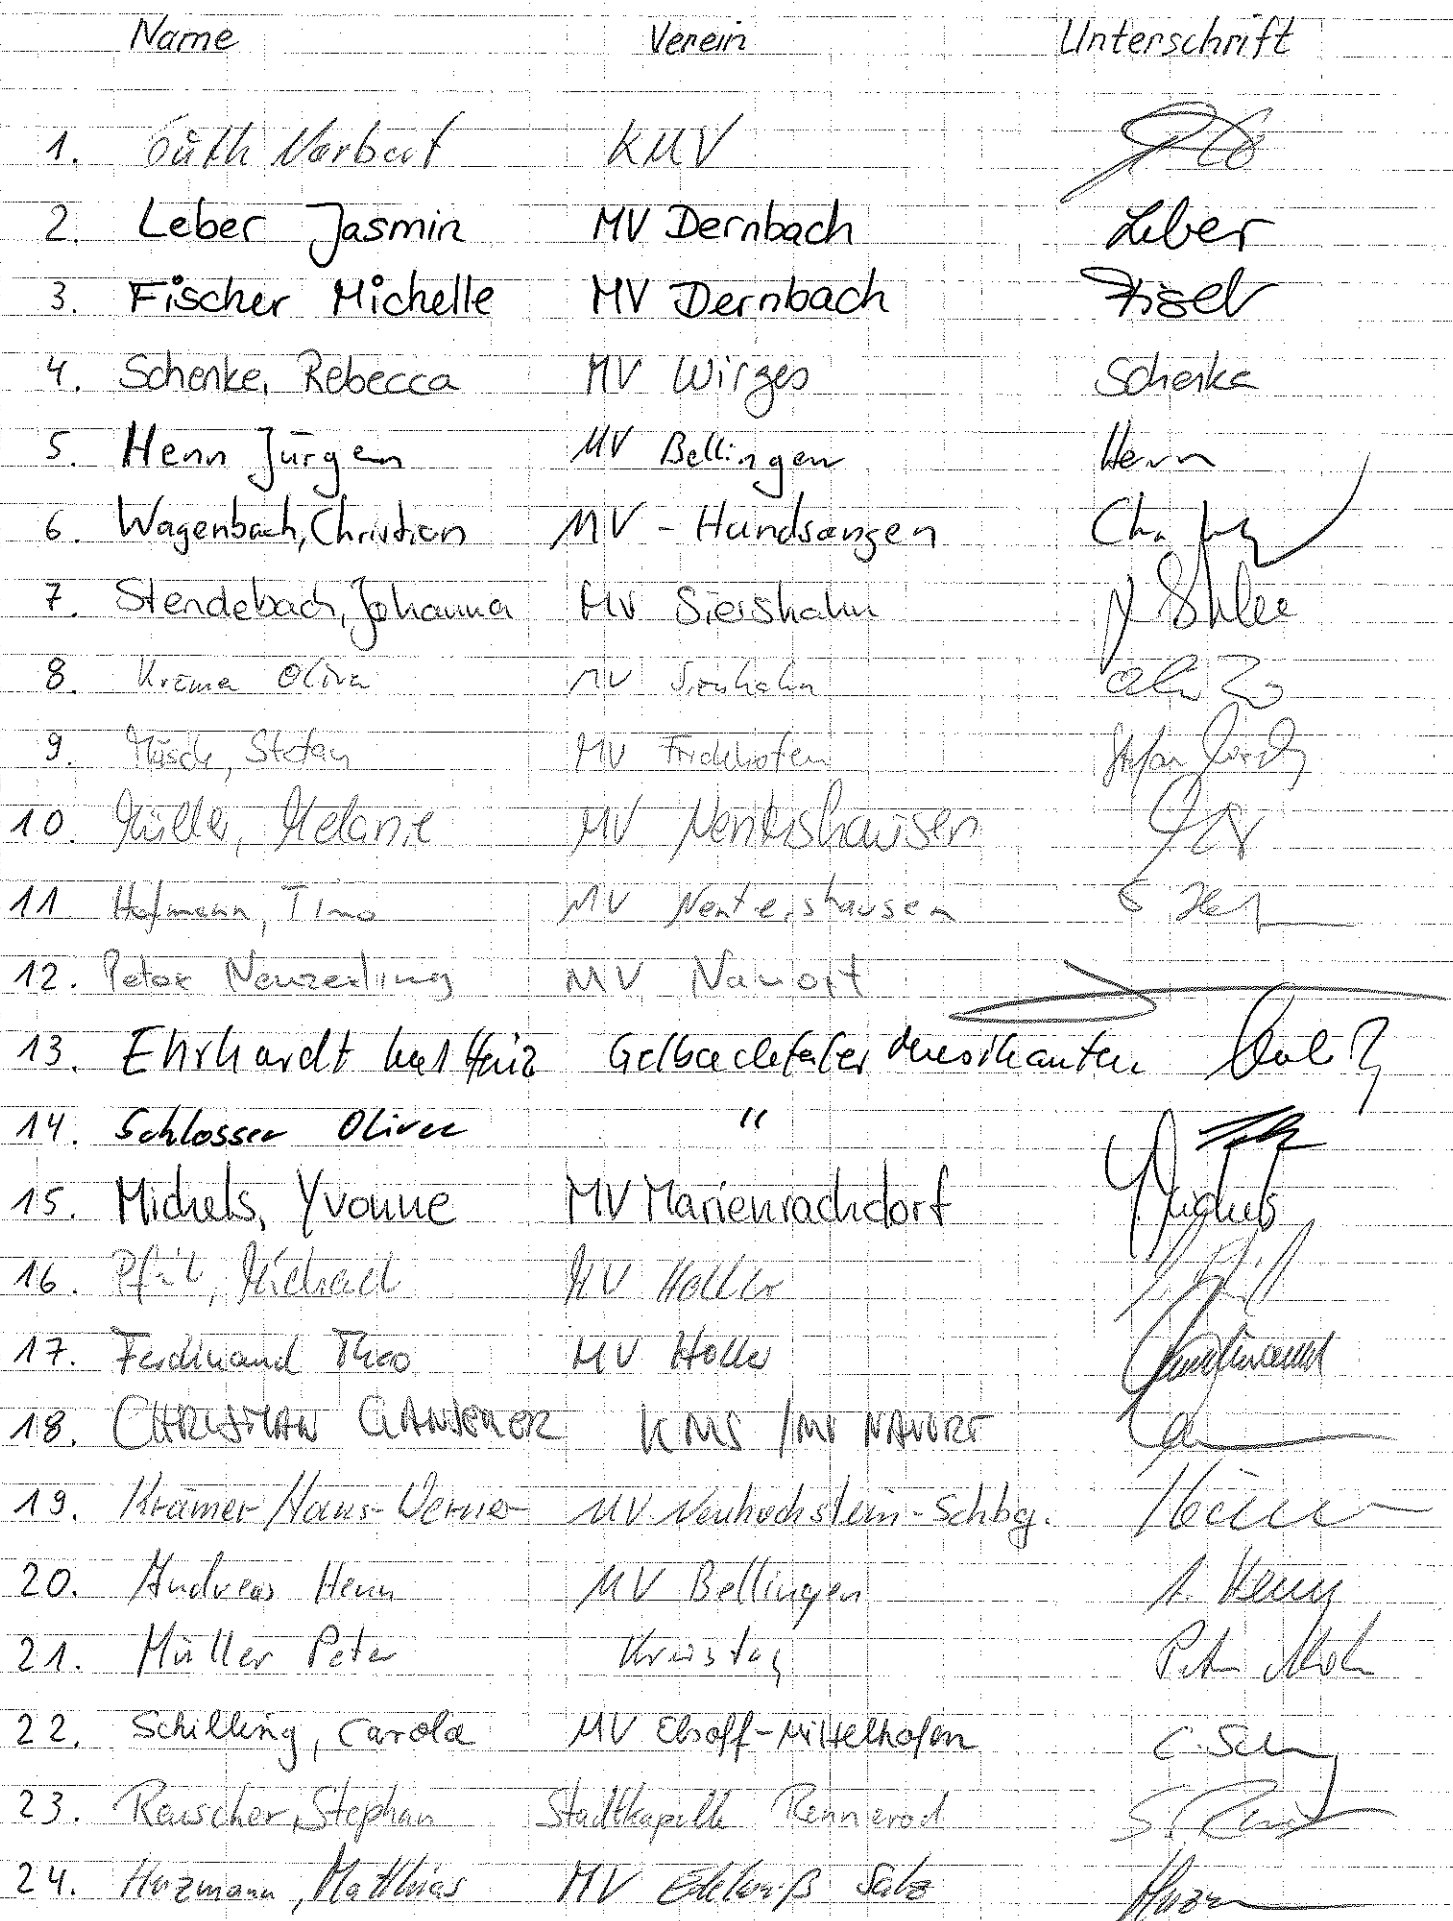 Name Verein Unterschrift
1. Norbert KMV
2. Leber Jasmin MV Dernbach Leber
3. Fischer Michelle MV Dernbach
4. Schenke, Rebecca MV Wirges Schenke
5. Henn Jürgen MV Bellingen Henn
6. Wagenbach, Christian MV - Hundsangen
7. Stendebach, Johanna MV Siershahn
8. MV Siershahn
9. Müsch, Stefan MV Frickhofen Stefan
10. Müller, Melanie MV Nentershausen
11 Hofmann, Timo MV Nentershausen
12. Peter Neuzerling MV Nauort
13. Ehrhardt Karl Heinz Gelbachtaler Musikanten
14. Schlosser Oliver "
15. Michels, Yvonne MV Marienrachdorf Y. Michels
16. Michael MV Holler
17. Ferdinand Theo MV Holler Ferdinand
18. CHRISTIAN KMS / MV NAUORT
19. Krämer Hans-Werner MV Neuhochstein-Schbg.
20. Andreas Henn MV Bellingen A. Henn
21. Müller Peter Kreistag Peter
22. Schilling, Carola MV Elsoff-Mittelhofen
23. Reuscher, Stephan Stadtkapelle Rennerod
24. Matthias MV Edelweiß Salz